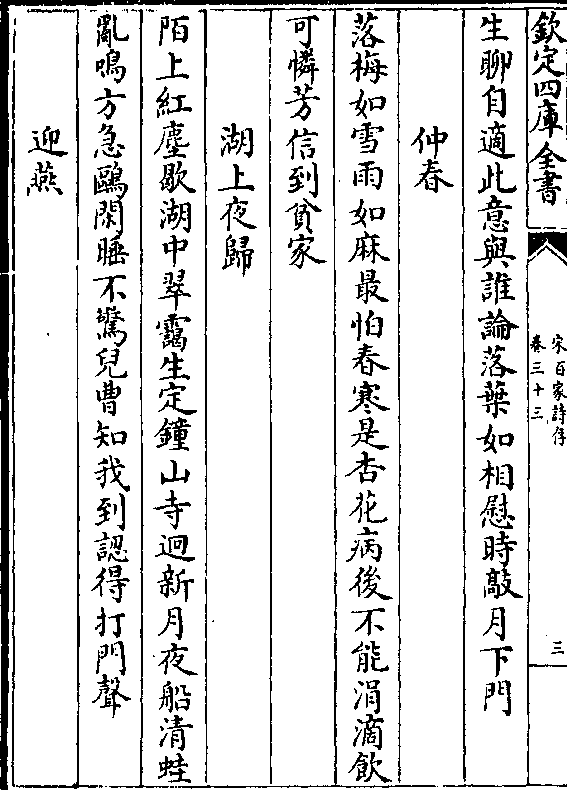 欽定四庫全書
宋百家詩存
卷三十三
三
生聊自適此意與誰論落葉如相慰時敲月下門
仲春
落梅如雪雨如麻最怕春寒是杏花病後不能涓滴飲
可憐芳信到貧家
湖上夜歸
陌上紅塵歇湖中翠靄生定鐘山寺迥新月夜船清蛙
亂鳴方急鷗閑睡不驚兒曹知我到認得打門聲
迎燕